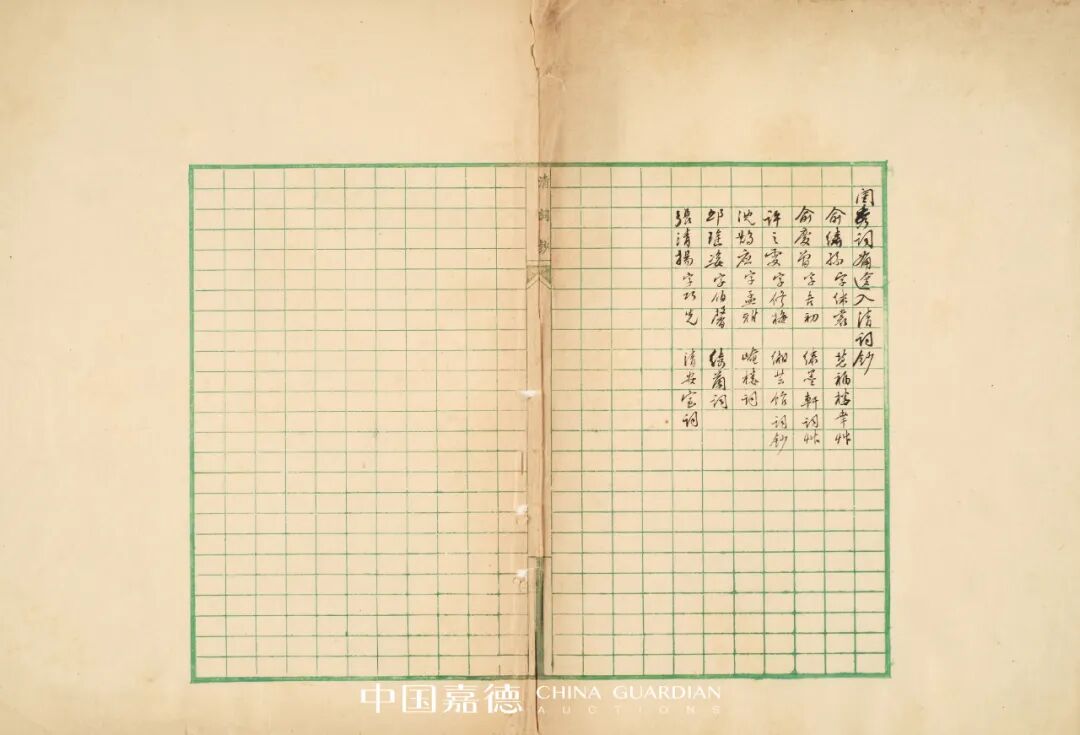 閨秀詞選入清詞鈔
俞繡孫 字綵裳 慧福樓幸艸
俞慶曾 字吉初 繡墨軒詞艸
許之雯 字修梅 緗芸館詞鈔
沈鵲應 字孟雅 崦樓詞
邱瑤姿 字伯馨 綺蘭詞
張清揚 字先 清安室詞
清詞鈔
中国嘉德 CHINA GUARDIAN
AUCTIONS